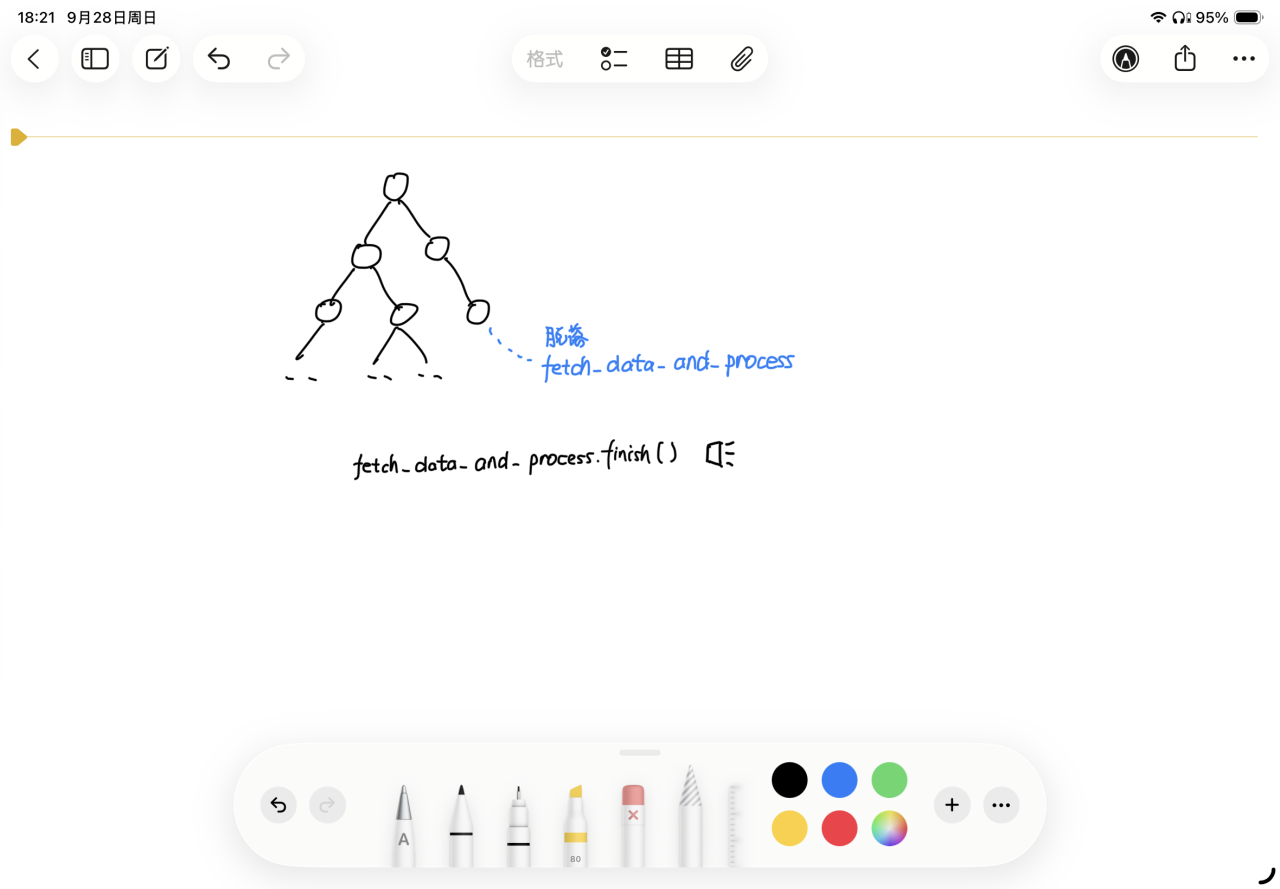 18:21 9月28日周日
95%
格式
脱落
fetch_data_and_process
fetch_data_and_process.finish()
A
80